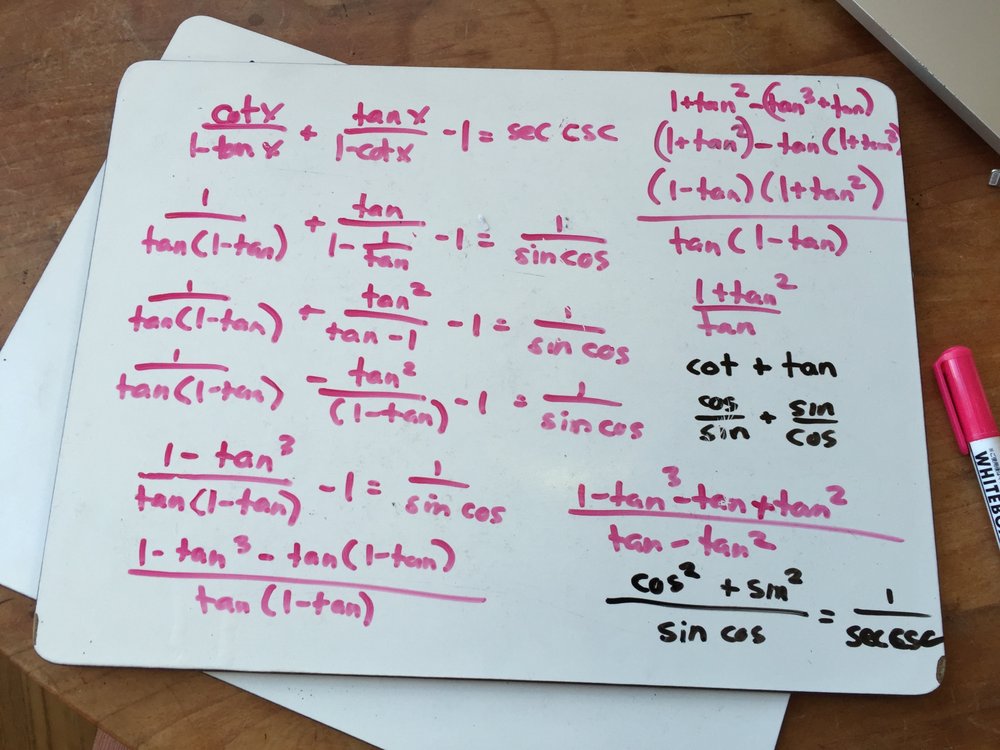 cot x / 1-tan x + tan x / 1-cot x - 1 = sec csc
1 / tan(1-tan) + tan / 1 - 1/tan - 1 = 1 / sin cos
1 / tan(1-tan) + tan² / tan - 1 - 1 = 1 / sin cos
1 / tan(1-tan) - tan² / (1-tan) - 1 = 1 / sin cos
1 - tan³ / tan(1-tan) - 1 = 1 / sin cos
1 - tan³ - tan(1-tan) / tan(1-tan)
1+tan² - (tan³+tan)
(1+tan²) - tan(1+tan²)
(1-tan)(1+tan²) / tan(1-tan)
1+tan² / tan
cot + tan
cos / sin + sin / cos
1-tan³-tan+tan² / tan - tan²
cos² + sin² / sin cos = 1 / sec csc